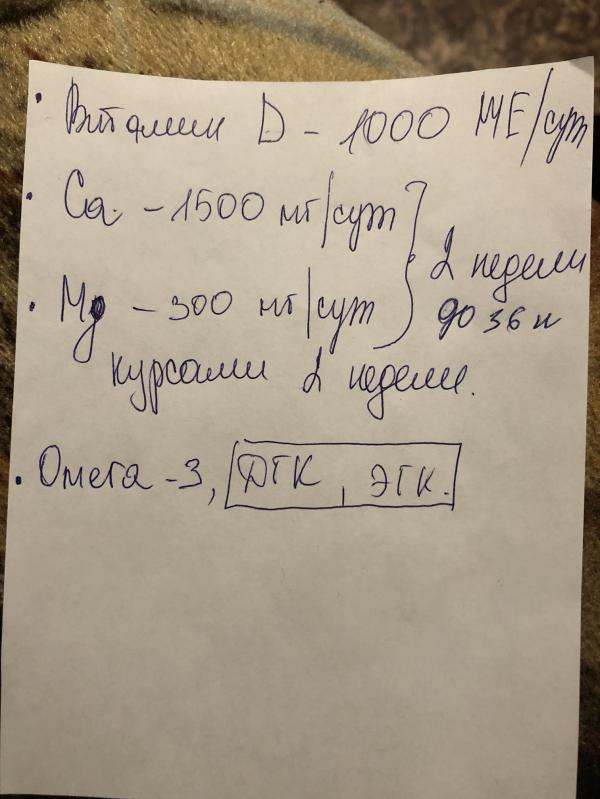 • Витамин D - 1000 МЕ/сут
• Ca - 1500 мг/сут
• Mg - 300 мг/сут
} 2 недели
до 36 н
курсами 2 недели.
• Омега-3, ДГК, ЭГК.